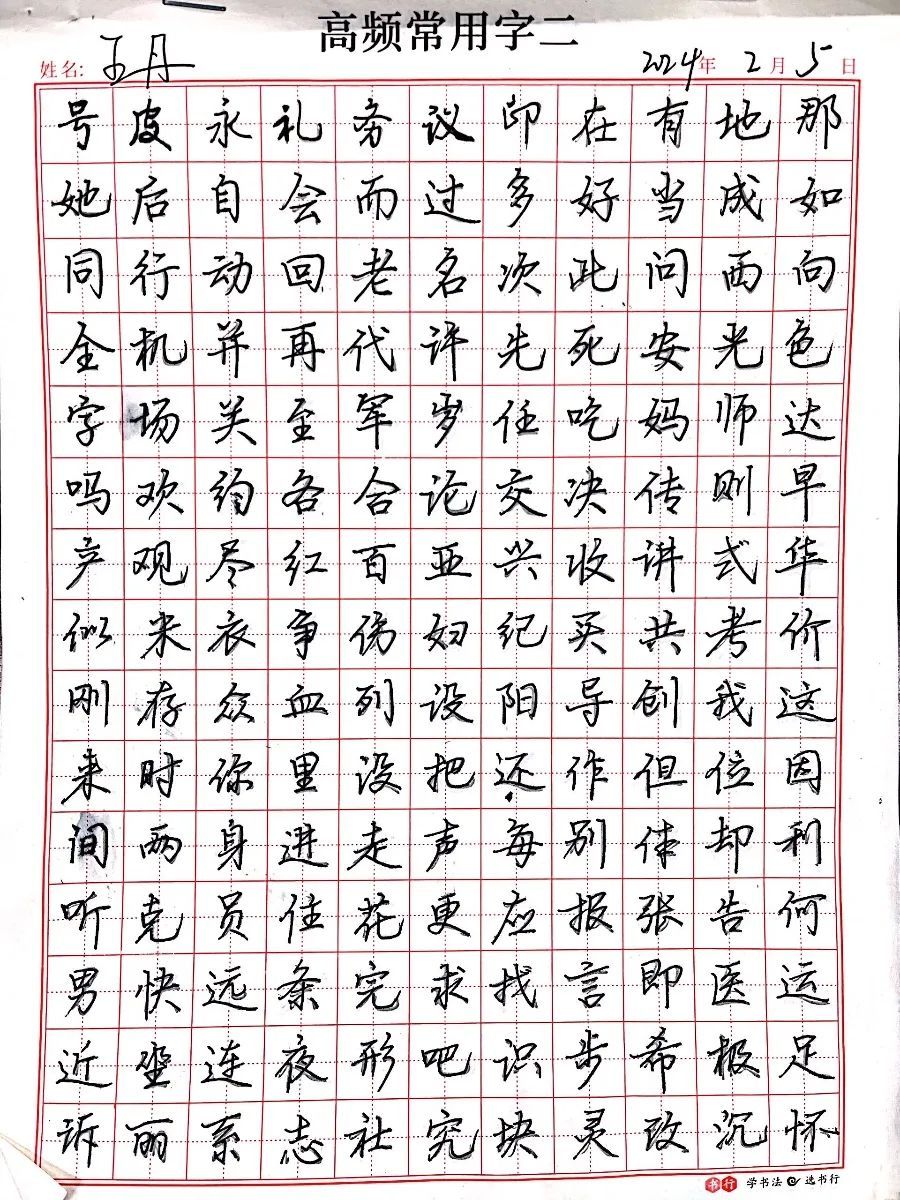 高频常用字二
姓名: 王丹 2024年 2月 5日
号皮永礼务议印在有地那
她后自会而过多好当成如
同行动回老名次此问西向
全机并再代许先死安光色
字场关至军岁任吃妈师达
吗欢约各合论交决传则早
产观尽红百亚兴收讲式华
似米衣争伤妇纪买共考价
刚存众血列设阳导创我这
来时你里没把还作但位因
间两身进走声每别体却利
听克员住花更应报张告何
男快远条完求找言即医运
近坐连夜形吧识步希极足
诉丽系志社究块灵改沉怀
书行 学书法 选书行